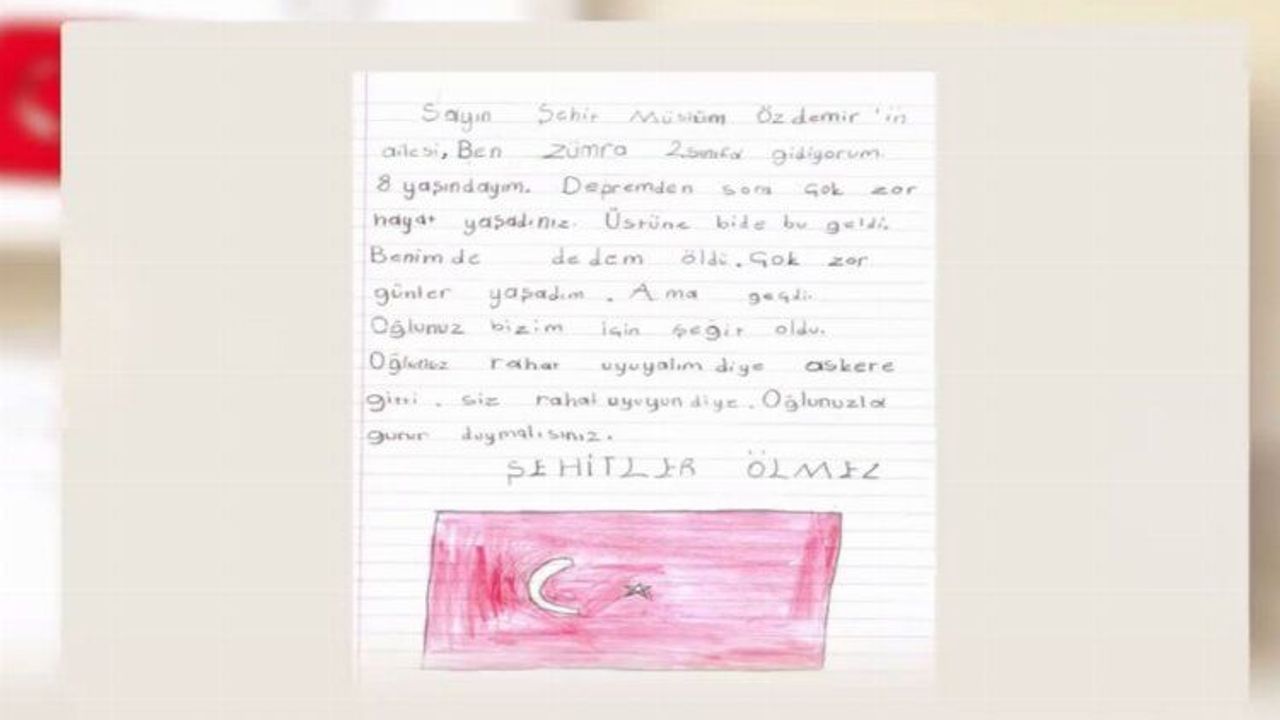 Sayın Şehir Müslüm Özdemir'in
ailesi, Ben Zümra 2.sınıfa gidiyorum.
8 yaşındayım. Depremden sora çok zor
hayat yaşadınız. Üstüne bide bu geldi.
Benim de dedem öldü. Çok zor
günler yaşadım. Ama geçdi.
Oğlunuz bizim için şeğit oldu.
Oğlunuz rahat uyuyalım diye askere
gitti. siz rahat uyuyun diye. Oğlunuzla
gurur duymalısınız.
ŞEHİTLER ÖLMEZ